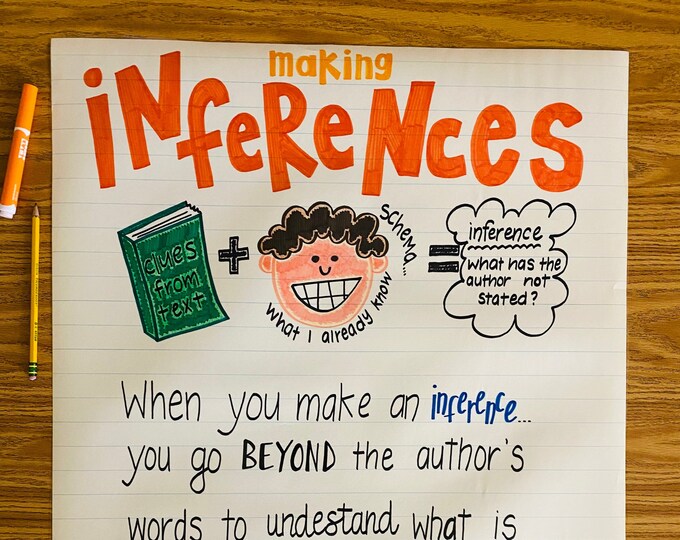 making
iNfeReNces
clues
from
text
+
schema...
what I already know
=
inference
what has the
author not
stated?
When you make an inference...
you go BEYOND the author's
words to undestand what is